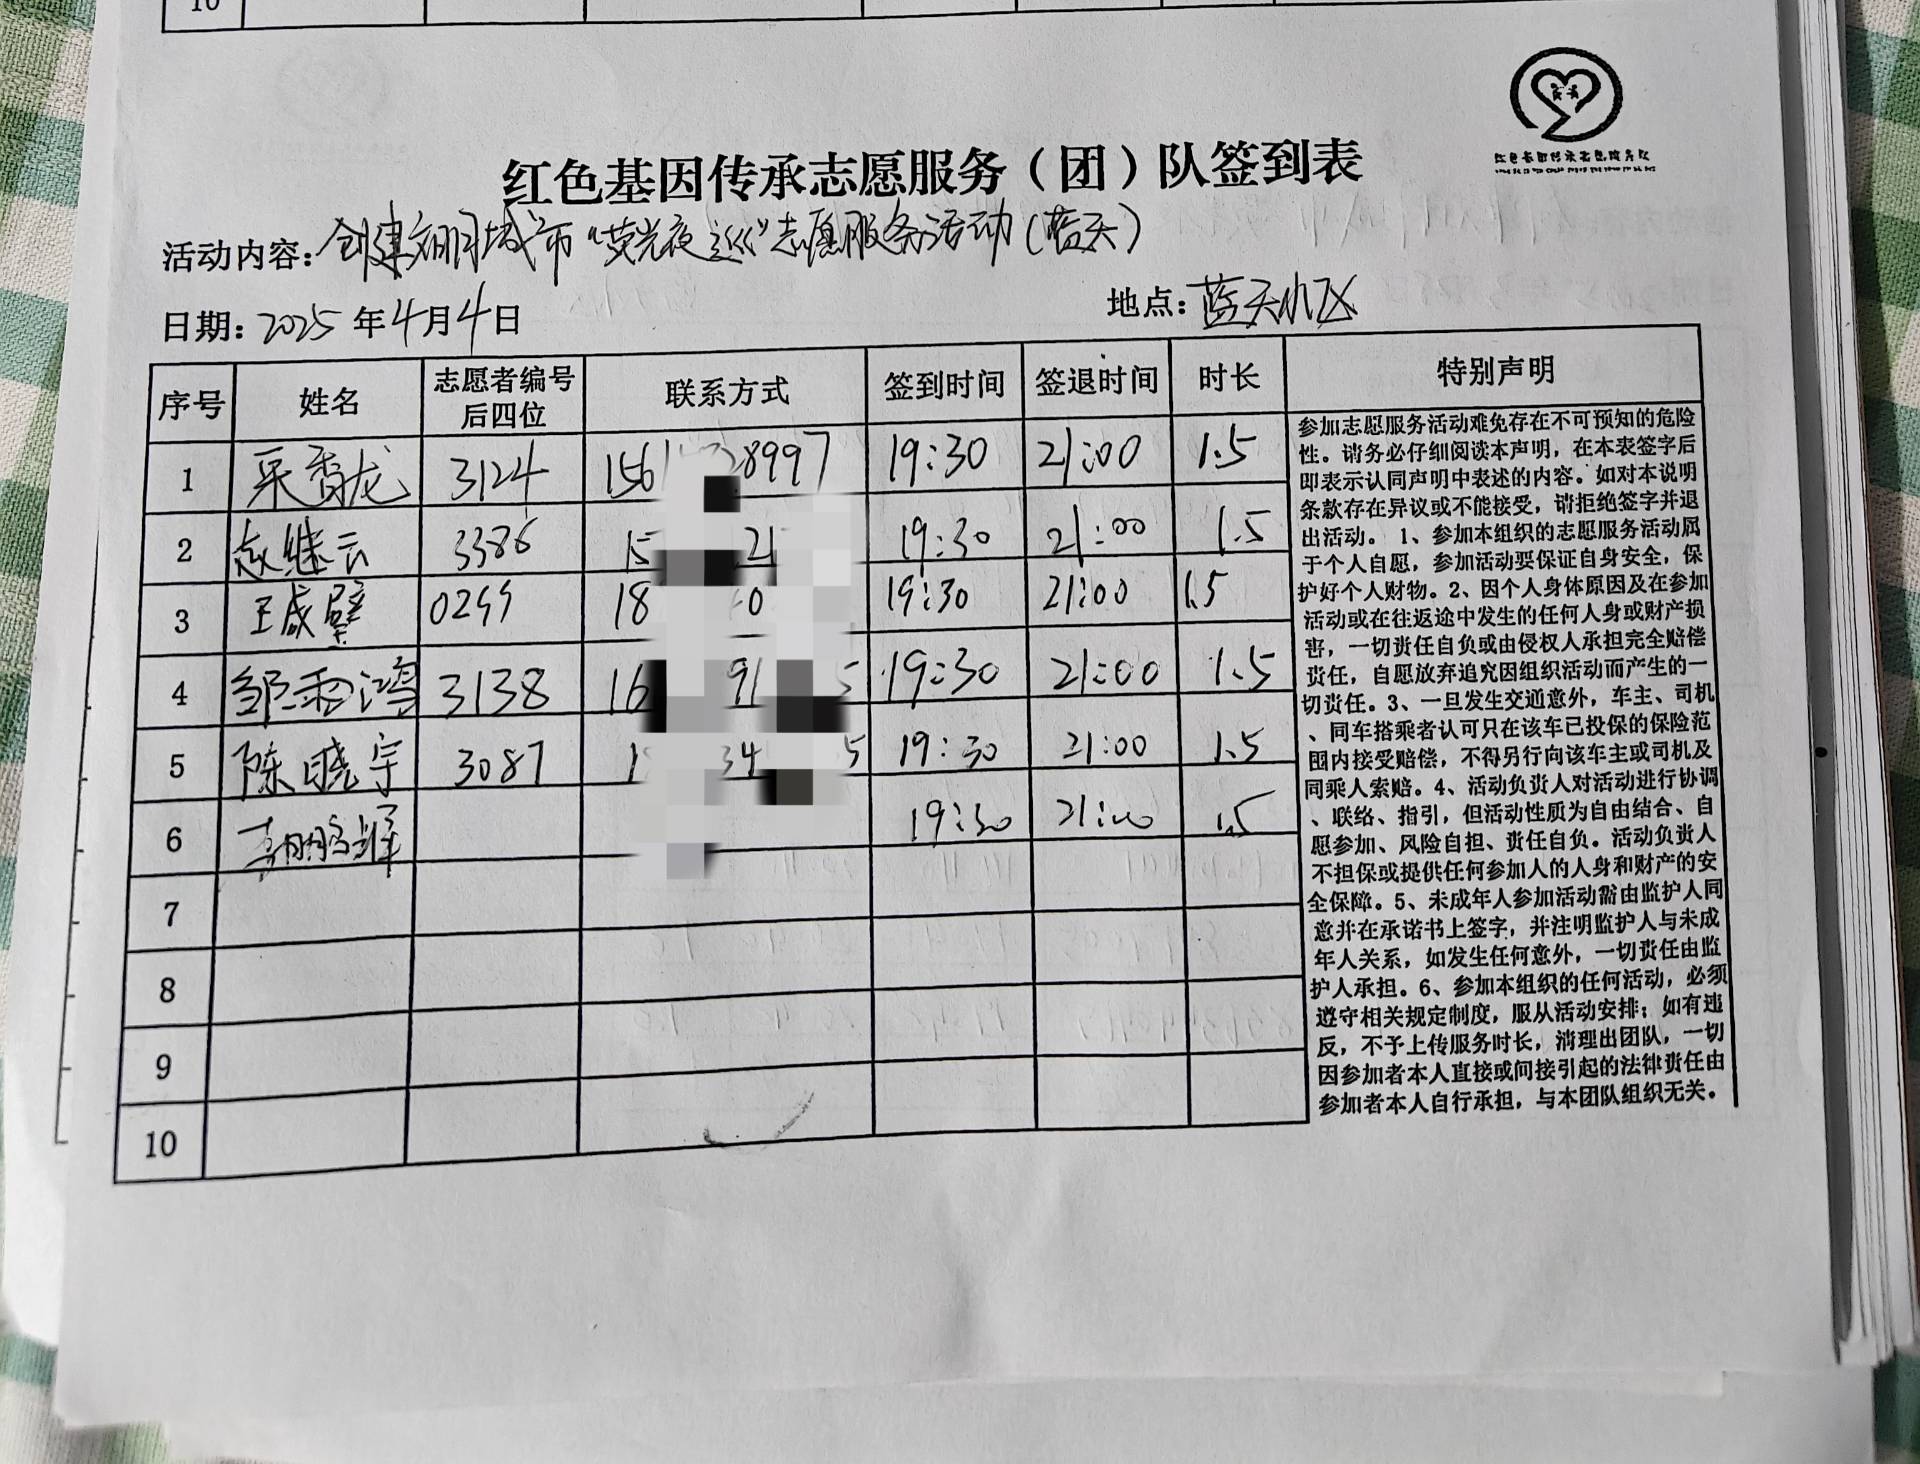 10
红色基因传承志愿服务(团)队签到表
活动内容：创建文明城市“荧光夜巡”志愿服务活动(蓝天)
日期：2025年4月4日 地点：蓝天小区
序号 姓名 志愿者编号后四位 联系方式 签到时间 签退时间 时长 特别声明
1 香龙 3124 156 8997 19:30 21:00 1.5
2 赵继云 3386 15 21 19:30 21:00 1.5
3 王成璧 0299 18 0 19:30 21:00 1.5
4 邹雨鸿 3138 16 91 5 19:30 21:00 1.5
5 陈晓宇 3087 1 34 5 19:30 21:00 1.5
6 19:30 21:00 1.5
7
8
9
10
参加志愿服务活动难免存在不可预知的危险
性。请务必仔细阅读本声明，在本表签字后
即表示认同声明中表述的内容。如对本说明
条款存在异议或不能接受，请拒绝签字并退
出活动。1、参加本组织的志愿服务活动属
于个人自愿，参加活动要保证自身安全，保
护好个人财物。2、因个人身体原因及在参加
活动或在往返途中发生的任何人身或财产损
害，一切责任自负或由侵权人承担完全赔偿
责任，自愿放弃追究因组织活动而产生的一
切责任。3、一旦发生交通意外，车主、司机
、同车搭乘者认可只在该车已投保的保险范
围内接受赔偿，不得另行向该车主或司机及
同乘人索赔。4、活动负责人对活动进行协调
、联络、指引，但活动性质为自由结合、自
愿参加、风险自担、责任自负。活动负责人
不担保或提供任何参加人的人身和财产的安
全保障。5、未成年人参加活动需由监护人同
意并在承诺书上签字，并注明监护人与未成
年人关系，如发生任何意外，一切责任由监
护人承担。6、参加本组织的任何活动，必须
遵守相关规定制度，服从活动安排；如有违
反，不予上传服务时长，清理出团队，一切
因参加者本人直接或间接引起的法律责任由
参加者本人自行承担，与本团队组织无关。